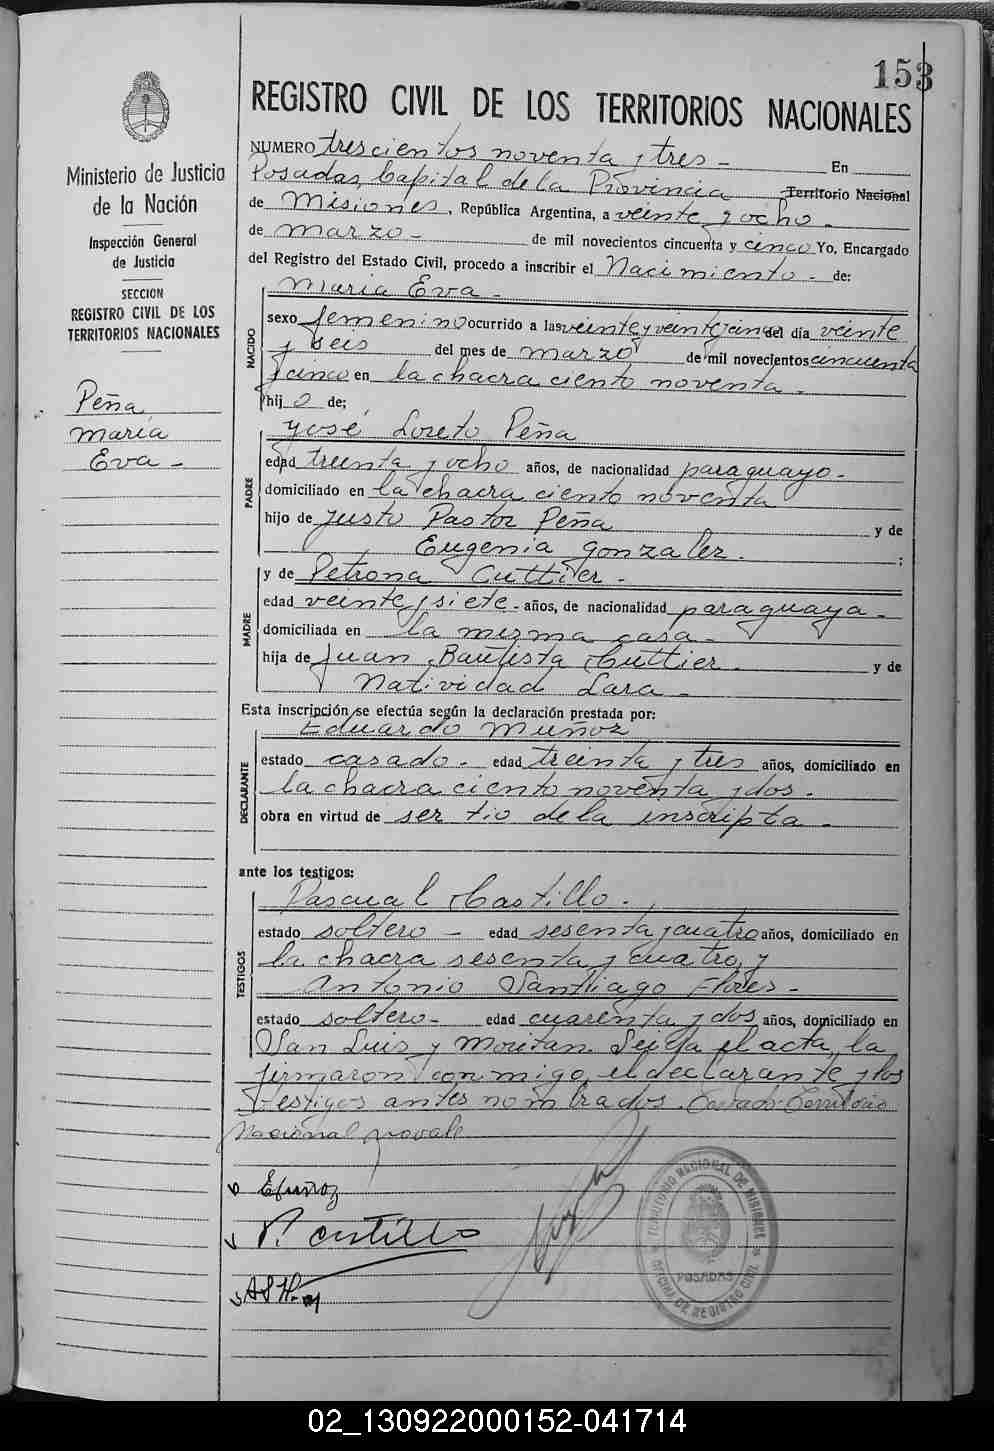 153
REGISTRO CIVIL DE LOS TERRITORIOS NACIONALES
Ministerio de Justicia
de la Nación
Inspección General
de Justicia
SECCION
REGISTRO CIVIL DE LOS
TERRITORIOS NACIONALES
Peña
María
Eva -
NUMERO trescientos noventa y tres - En
Posadas, Capital de la Provincia Territorio Nacional
de Misiones, República Argentina, a veinte y ocho -
de marzo - de mil novecientos cincuenta y cinco Yo, Encargado
del Registro del Estado Civil, procedo a inscribir el Nacimiento - de:
María Eva -
NACIDO
sexo femenino ocurrido a las veinte y veinte y cinco del día veinte
y seis del mes de marzo de mil novecientos cincuenta
y cinco en la chacra ciento noventa.
hij a de;
PADRE
José Loreto Peña
edad treinta y ocho años, de nacionalidad paraguayo -
domiciliado en la chacra ciento noventa
hijo de Justo Pastor Peña y de
Eugenia Gonzalez. ;
MADRE
y de Petrona Cuttier -
edad veinte y siete - años, de nacionalidad paraguaya -
domiciliada en la misma casa -
hija de Juan Bautista Cuttier. y de
Natividad Lara -
Esta inscripción se efectúa según la declaración prestada por:
Eduardo Muñoz
DECLARANTE
estado casado - edad treinta y tres años, domiciliado en
la chacra ciento noventa y dos.
obra en virtud de ser tio de la inscripta -
ante los testigos:
TESTIGOS
Pascual Castillo.
estado soltero - edad sesenta y cuatro años, domiciliado en
la chacra sesenta y cuatro, y
Antonio Santiago Flores -
estado soltero - edad cuarenta y dos años, domiciliado en
San Luis y Moritan. Leída el acta, la
firmaron conmigo, el declarante y los
testigos antes nombrados. Testado: Territorio
Nacional no vale
E Muñoz
P. castillo
TERRITORIO NACIONAL DE MISIONES
POSADAS
OFICINA DE REGISTRO CIVIL
02_130922000152-041714